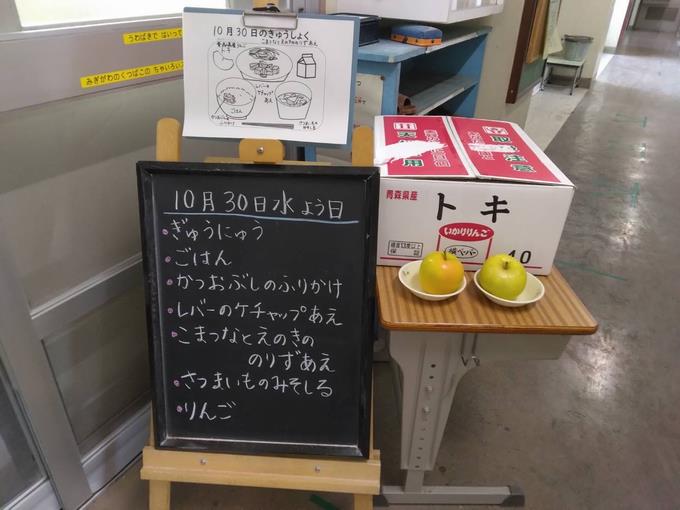 10月30日のきゅうしょく
ごはん
うわばきで はいって
みぎがわのくつばこの ちゃいろい
10月30日水よう日
ぎゅうにゅう
ごはん
かつおぶしのふりかけ
レバーのケチャップあえ
こまつなとえのきの
のりずあえ
さつまいものみそしる
りんご
取扱注意
青森県産
トキ
いかりりんご
40